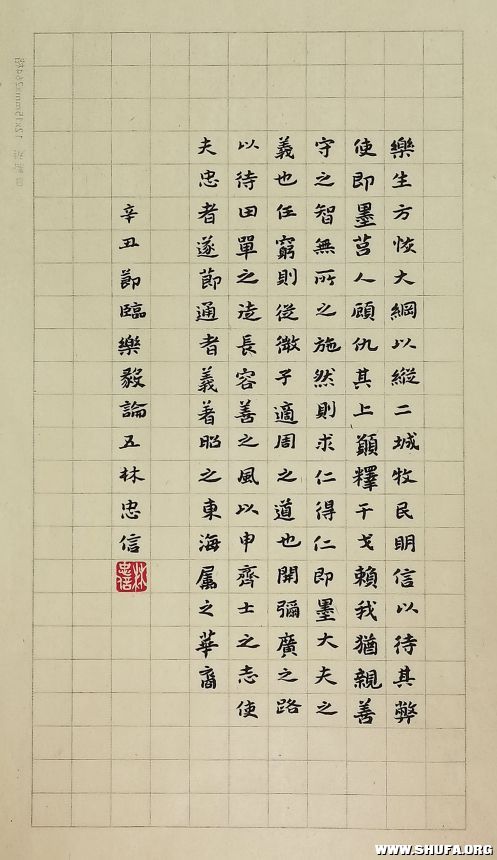 樂生方恢大綱以縱二城牧民明信以待其弊
使即墨莒人顧仇其上顚釋干戈賴我猶親善
守之智無所之施然則求仁得仁即墨大夫之
義也任窮則從微子適周之道也開彌廣之路
以待田單之造長容善之風以申齊士之志使
夫忠者遂節通者義著昭之東海属之華裔
辛丑節臨樂毅論五林忠信
林忠信
WWW.SHUFA.ORG